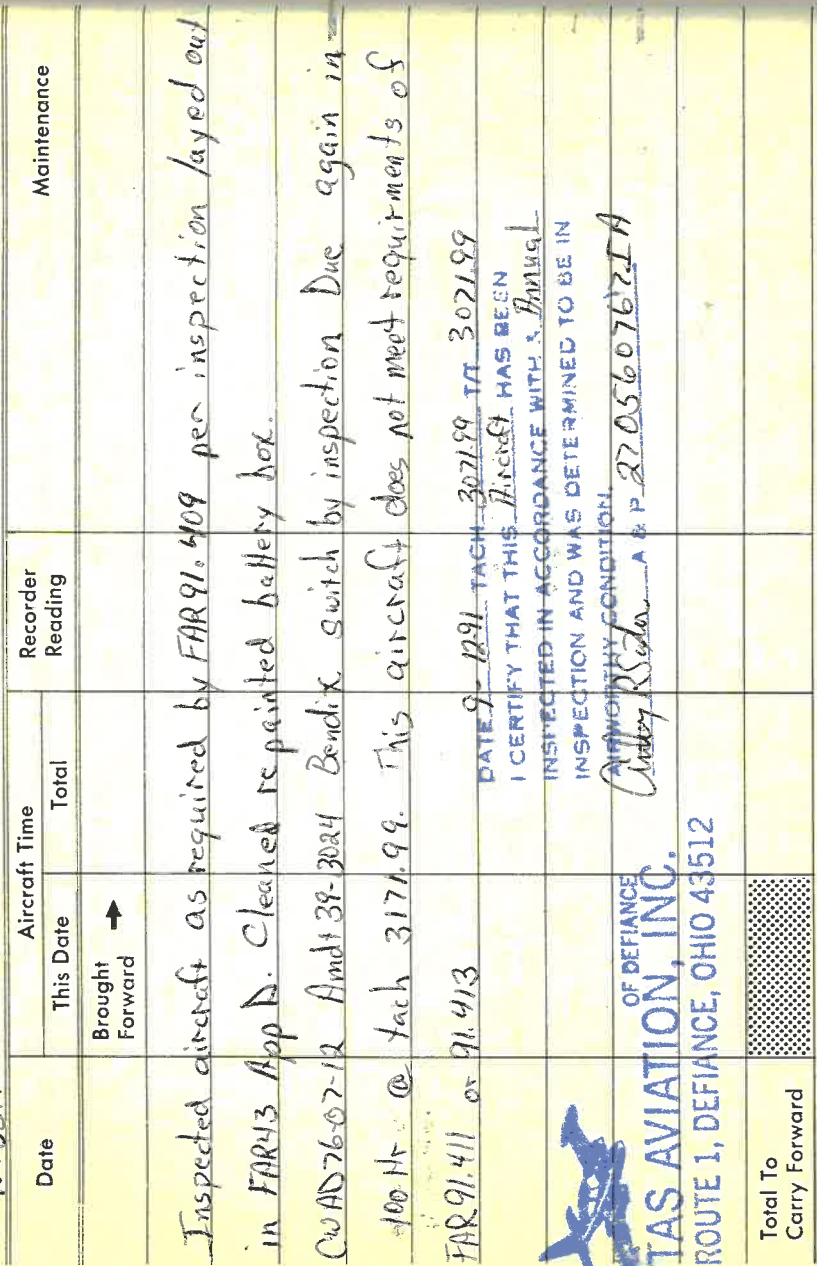 Date
Aircraft Time
This Date
Total
Recorder Reading
Maintenance
Brought Forward
Inspected aircraft as required by FAR 91.409 per inspection layed out
in FAR43 App D. Cleaned repainted battery box.
CW AD 76-07-12 Amdt 39-3024 Bendix switch by inspection Due again in
100 Hr @ tach 3171.99. This aircraft does not meet requirments of
FAR 91.411 or 91.413
DATE 9-12-91 TACH 3071.99 T/T 3071.99
I CERTIFY THAT THIS Aircraft HAS BEEN
INSPECTED IN ACCORDANCE WITH A Annual
INSPECTION AND WAS DETERMINED TO BE IN
AIRWORTHY CONDITION.
A & P 270560767IA
OF DEFIANCE
TAS AVIATION, INC.
ROUTE 1, DEFIANCE, OHIO 43512
Total To Carry Forward